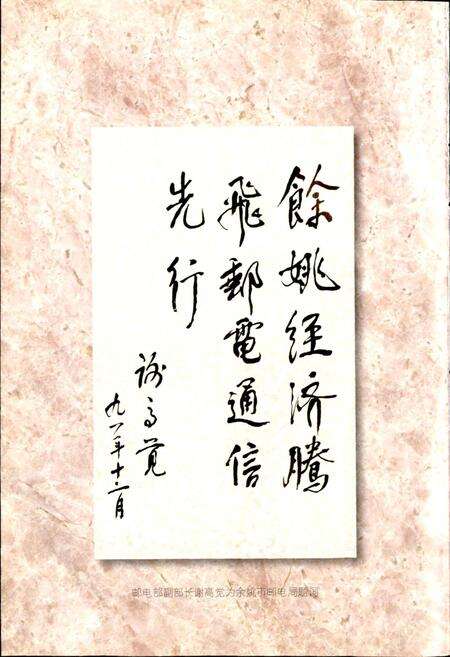 餘姚经济腾
飛郵電通信
先行
谢高觉
九八年十二月
邮电部副部长谢高觉为余姚市邮电局题词